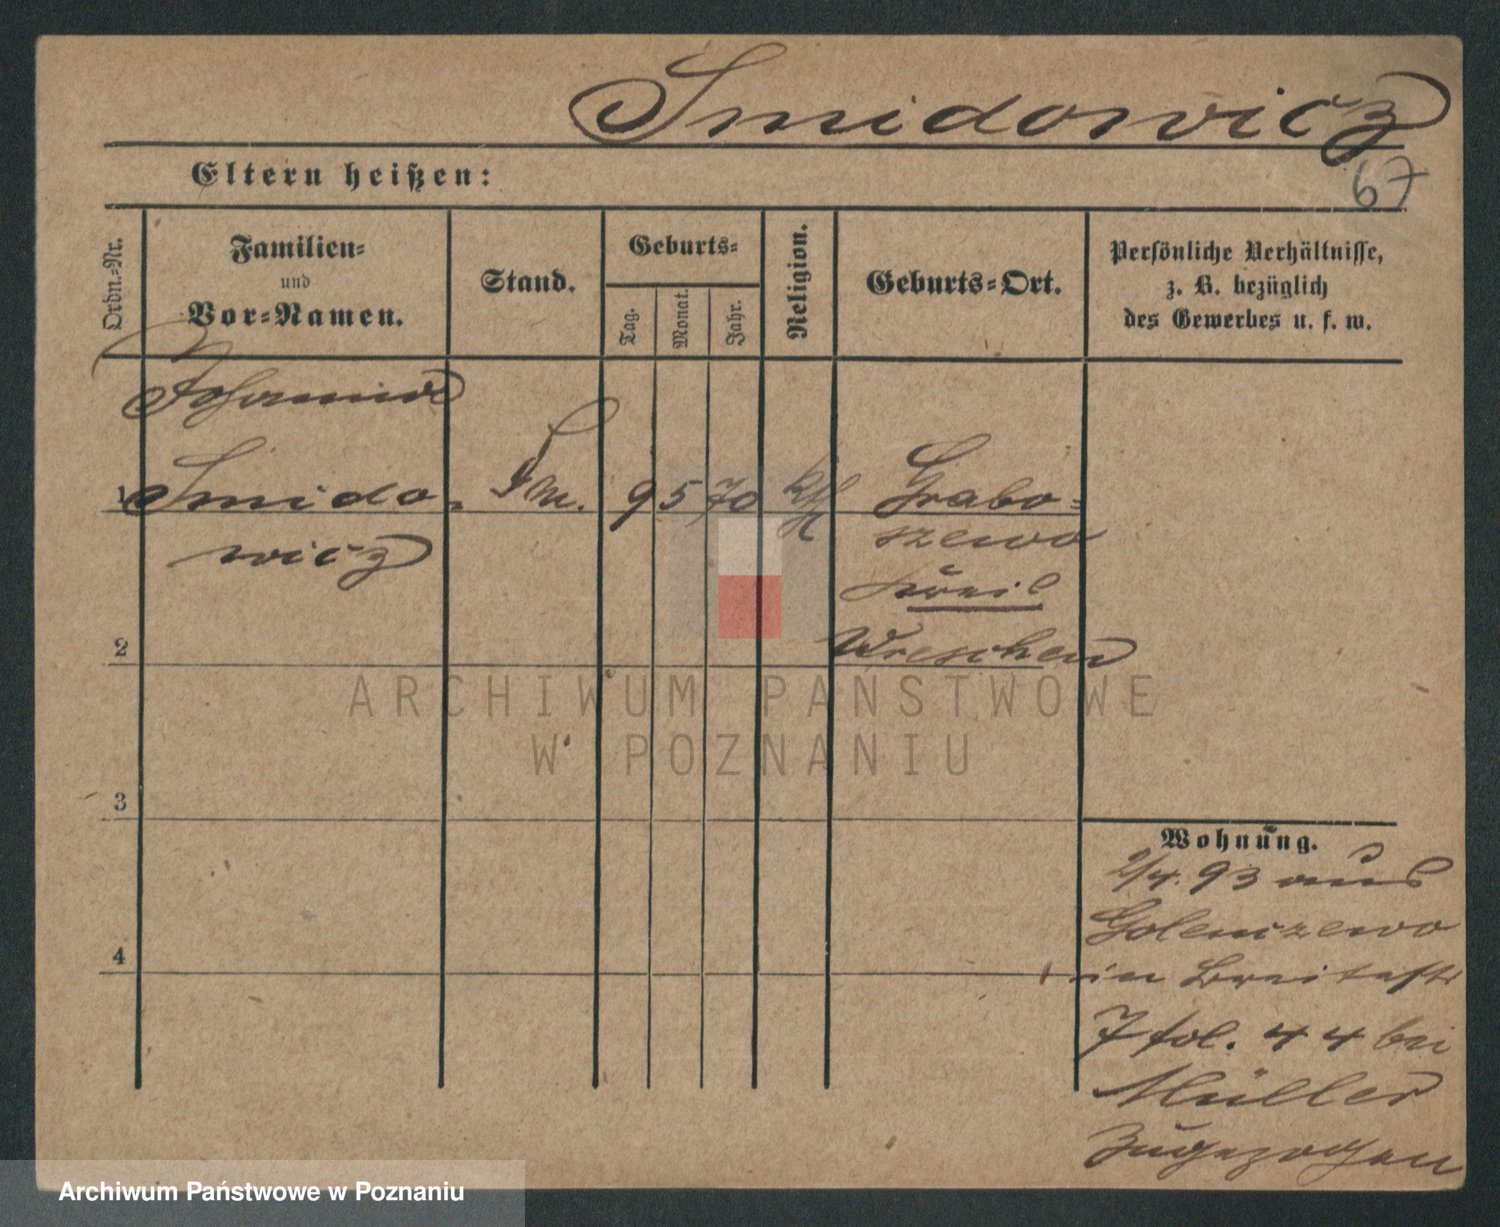 Smidowicz
67
Eltern heißen:
Ordn.-Nr.
Familien-
und
Vor-Namen.
Stand.
Geburts-
Tag.
Monat.
Jahr.
Religion.
Geburts-Ort.
Persönliche Verhältnisse,
z. B. bezüglich
des Gewerbes u. s. w.
Johanna
1 Smido- 9 5 70 kth Grabo-
wicz szewo
Kreis
Wreschen
2
3
4
Wohnung.
2/4. 93 aus
Golenczewo
in Breitestr
7 fol. 44 bei
Müller
zugezogen
ARCHIWUM PAŃSTWOWE
W POZNANIU
Archiwum Państwowe w Poznaniu